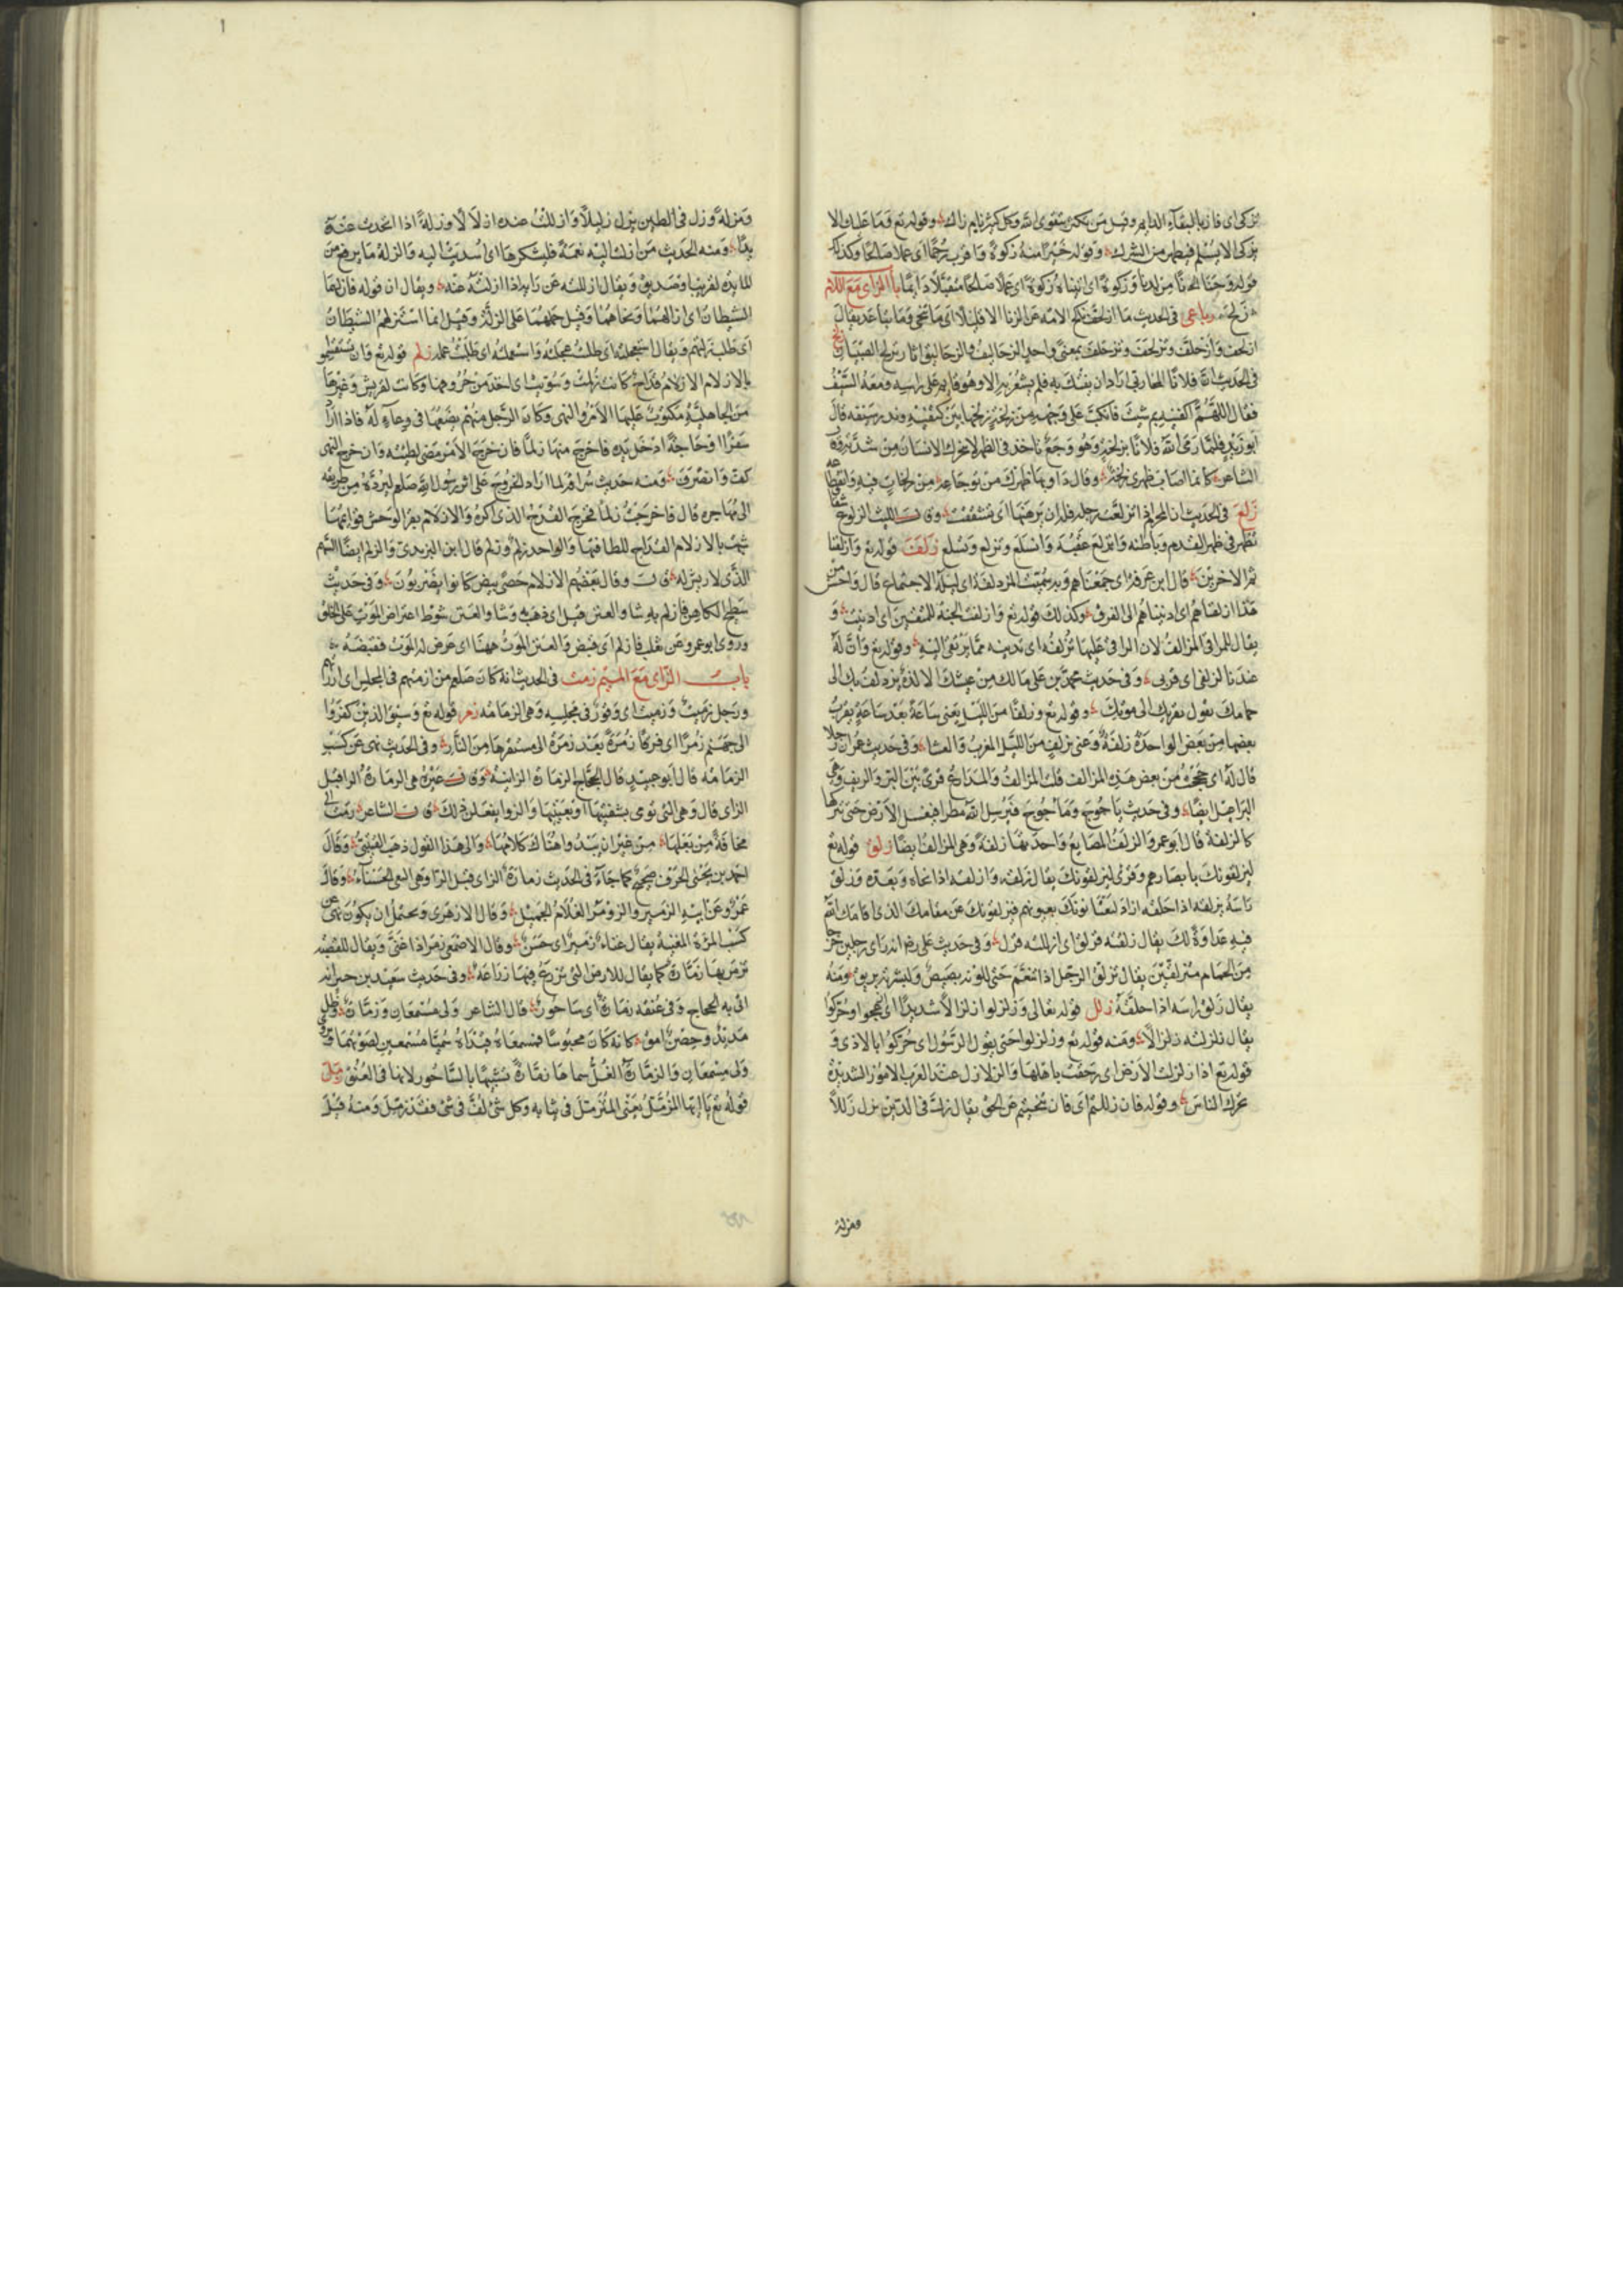 تزكى اى فاز بالبقاء الدايم وقيل من تكثر بتقوى الله وكل كثير نام زاك وقوله تع وما عليك الا
يزكى الا يسلم فيطهر من الشرك وقوله خيرا منه زكوة واقرب رحما اى عملا صالحا وكذلك
قوله وحنانا من لدنا وزكوة اى اتيناه زكوة اى عملا صالحا متقبلا دايما باب الزاى مع اللام
زلحف رباعى فى الحديث ما ازلحف ناكح الامة عن الزنا الا قليلا اى ما تنحى وما تباعد يقال
ازلحف وازحلف وتزلحف وتزحلف بمعنى واحد والزحاليف والزحاليق اثار تزلج الصبيان زلخ
فى الحديث ان فلانا المحاربى اراد ان يفتك به فلم يشعر به الا وهو قايم على راسه ومعه السيف
فقال اللهم اكفنيه بم شيت فانكب على وجهه من زلخة زلخها بين كتفيه وندر سيفه قال
ابو زيد فلما رمى الله فلانا بزلخة وهو وجع ياخذ فى الظهر لا يتحرك الانسان من شدته
الشاعر كانما اصاب ظهرى زلخه وقال داو بها ظهرك من توجاعه من زلخات فيه وانقطاعه
زلع فى الحديث ان المحرم اذا تزلعت رجله فله ان يدهنها اى تشققت وقال الليث الزلوع شقاق
تظهر فى ظهر القدم وباطنه وانزلع عقبه وانسلع وتزلع وتسلع زلف قوله تع وازلفنا
ثم الاخرين قال ابن عرفة اى جمعناهم وبه سميت المزدلفة اى ليلة الاجتماع قال واحسن من
هذا ازلفناهم اى ادنيناهم الى الغرق وكذلك قوله تع وازلفت الجنة للمتقين اى ادنيت و
يقال للمراقى المزالف لان الراقى عليها تزلفه اى تدنيه مما يرتقى اليه وقوله تع وان له
عندنا لزلفى اى قربى وفى حديث محمد بن على مالك من عيشك الا لذة تزدلف بك الى
حمامك يقول تقربك الى موتك وقوله تع وزلفا من الليل يعنى ساعة بعد ساعة يقرب
بعضها من بعض الواحدة زلفة وعنى بزلف من الليل المغرب والعشا وفى حديث عمر ان رجلا
قال له اى حججت من بعض هذه المزالف قلت المزالف والمذارع قرى بين البر والريف وهى
البراغيل ايضا وفى حديث ياجوج وماجوج فيرسل الله مطرا فيغسل الارض حتى يتركها
كالزلفة قال ابو عمرو الزلف المصانع واحدتها زلفة وهى المزالف ايضا زلق قوله تع
ليزلقونك بابصارهم وقرى ليزلقونك يقال زلقه وازلقه اذا نحاه وبعده وزلق
راسه يزلقه اذا حلقه اراد ليعتانونك بعيونهم فيزلقونك عن مقامك الذى اقامك الله
فيه عداوة لك يقال زلقته فزلق اى ازللته فزل وفى حديث على رض انه راى رجلين خرجا
من الحمام متزلقين يقال تزلق الرجل اذا تنعم حتى للونه بصيص ولبشرته بريق ومنه
يقال زلق راسه اذا حلقه زلل قوله تعالى وزلزلوا زلزالا شديدا اى ازعجوا وحركوا
يقال زلزلته زلزالا ومنه قوله تع وزلزلوا حتى يقول الرسول اى حركوا بالاذى و
قوله تع اذا زلزلت الارض اى رجفت باهلها والزلازل عند العرب الامور الشديدة
تحرك الناس وقوله فان زللتم اى فان تنحيتم عن الحق يقال زلت فى الدين يزل زللا
ومزلة
ومزلة وزل فى الطين يزل زليلا وازللت عنده ازلالا وزلة اذا اتخذت عنده
يدا ومنه الحديث من ازلت اليه نعمة فليشكرها اى اسديت اليه والزلة ما يرفع من
المايدة لقريب او صديق ويقال ازللته عن رايه اذا ازلته عنه ويقال ان قوله فازلهما
الشيطان اى ازالهما ونحاهما وقيل حملهما على الزلة وقيل انما استزلهم الشيطان
اى طلب زلتهم ويقال استعجلته اى طلبت عجلته واستعملته اى طلبت عمله زلم قوله تع وان تستقسموا
بالازلام الازلام قداح كانت زلمت وسويت اى اخذ من حروفها وكانت لقريش وغيرها
من الجاهلية مكتوب عليها الامر والنهى وكان الرجل منهم يضعها فى وعاء له فاذا اراد
سفرا او حاجة ادخل يده فاخرج منها زلما فان خرج الامر مضى لطيته وان خرج النهى
كف وانصرف ومنه حديث سراقة لما اراد الخروج على اثر رسول الله صلعم ليرده من طريقه
الى مهاجره قال فاخرجت زلما فخرج القدح الذى اكره والازلام بقر الوحش قوايمها
شبهت بالازلام القداح للطافتها والواحد زلم وزلم قال ابن اليزيدى والزلم ايضا السهم
الذى لا ريش له قال وقال بعضهم الازلام حصى بيض كانوا يضربون وفى حديث
سطيح الكاهن فازلم به شاو العنن قيل اى ذهب به وشاو العنن شوط اعتراض الموت على الخلق
وروى ابو عمرو عن ثعلب فازلم اى قبض والعنن الموت ههنا اى عرض له الموت فقبضه
باب الزاى مع الميم زمت فى الحديث انه كان صلعم من ازمتهم فى المجلس اى ارزنهم
ورجل زميت وزميت اى وقور فى مجلسه وهى الزماته زمر قوله تع وسيق الذين كفروا
الى جهنم زمرا اى فرقا زمرة بعد زمرة الى مستقرها من النار وفى الحديث نهى عن كسب
الزمارة قال ابو عبيد قال الحجاج الزمارة الزانية وقال غيره هى الرمازة الرا قبل
الزاى قال وهى التى تومى بشفتيها او بعينيها والزوانى يفعلن ذلك قال الشاعر رمزت الى
مخافة من بعلها من غير ان يبدو هناك كلامها والى هذا القول ذهب القتيبى وقال
احمد بن يحيى الحرف صحيح كما جاء فى الحديث زمارة الزاى قبل الرا وهى البغى الحسناء وقال
عمرو عن ابيه الزمير والزومر الغلام الجميل وقال الازهرى ويحتمل ان يكون نهى عن
كسب المراة المغنية يقال غناء زمير اى حسن وقال الاصمعى زمر اذا غنى ويقال للقصبه
يزمر بها زمارة كما يقال للارض التى يزرع فيها زراعة وفى حديث سعيد بن جبير انه
اتى به الحجاج وفى عنقه زمارة اى ساجور قال الشاعر ولى مسمعان وزمارة وظل
مديد وحصن امق كانه كان محبوسا فمسمعاه قيداه سميا مسمعين لصوتهما
ولى مسمعان والزمارة الغل سماها زمارة تشبيها بالساجور لانها فى العنق زمل
قوله تع يا ايها المزمل يعنى المتزمل فى ثيابه وكل شى لف فى شى فقد زمل ومنه قيل